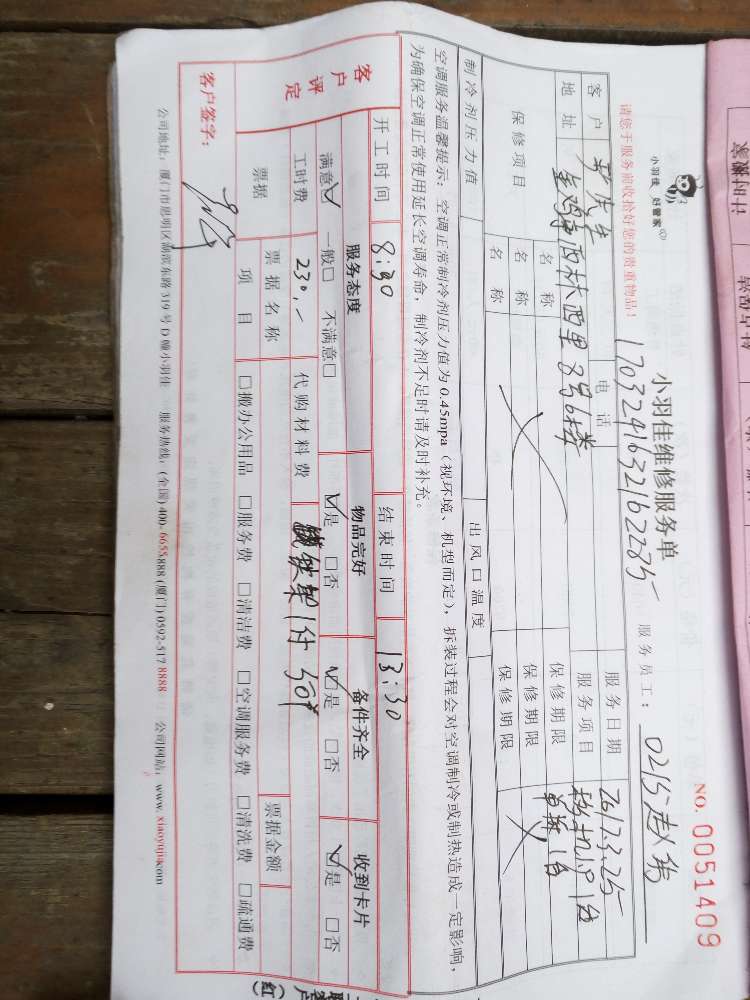 小羽佳 好管家
小羽佳维修服务单
NO. 0051409
请您于服务前收拾好您的贵重物品!
1703241632162285
服务员工: 0215
客户
电话
服务日期 2017.3.25
地址 金鸡亭西林西里8号6楼
服务项目 移机1.5P 1台
保修项目 名称 保修期限
名称 保修期限
名称 保修期限
制冷剂压力值 出风口温度
空调服务温馨提示: 空调正常制冷剂压力值为0.45mpa(视环境、机型而定), 拆装过程会对空调制冷或制热造成一定影响,
为确保空调正常使用延长空调寿命, 制冷剂不足时请及时补充。
开工时间 8:30 结束时间 13:30
客户评定
服务态度 物品完好 备件齐全 收到卡片
满意☑ 一般□ 不满意□ ☑是 □否 ☑是 □否 ☑是 □否
工时费 230.- 代购材料费 铁架1付 50元
票据 票据名称 票据金额
项目 □搬办公用品 □服务费 □清洁费 □空调服务费 □清洗费 □疏通费
客户签字:
公司地址: 厦门市思明区湖滨东路319号D幢小羽佳 服务热线: (全国)400-6655888 (厦门)0592-517 8888 公司网站: www.xiaoyujia.com
计时
联客户(红)